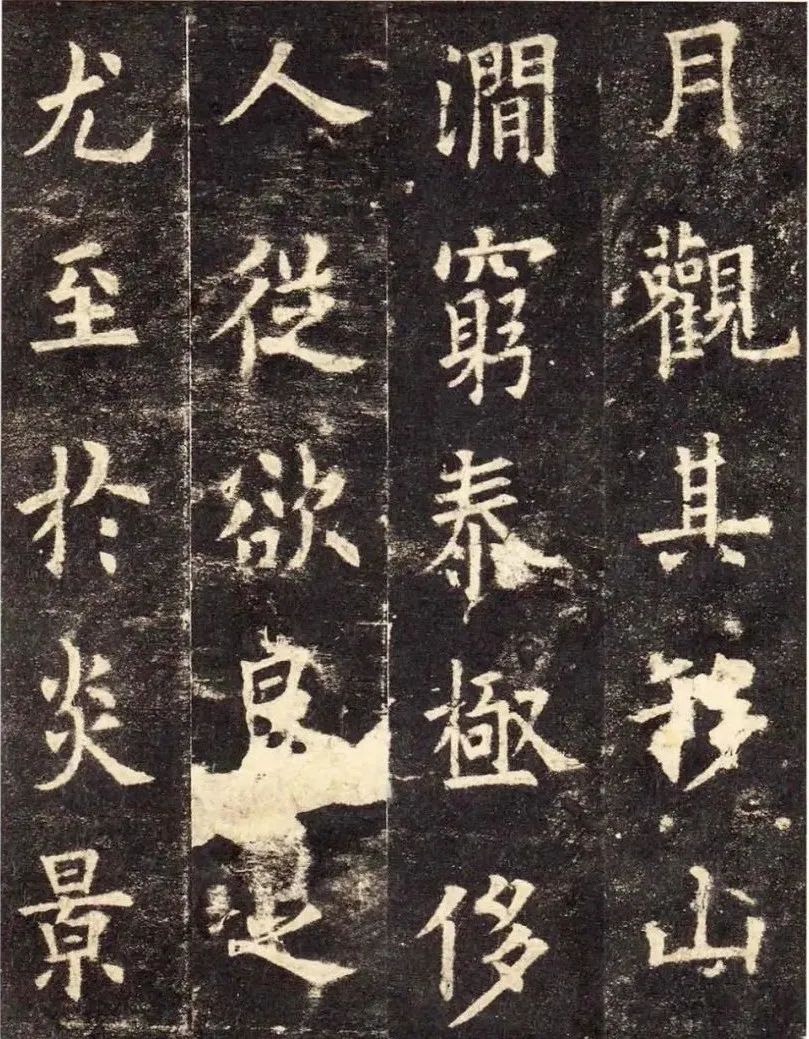 月觀其移山
澗窮泰極侈
人從欲良
尤至於炎景